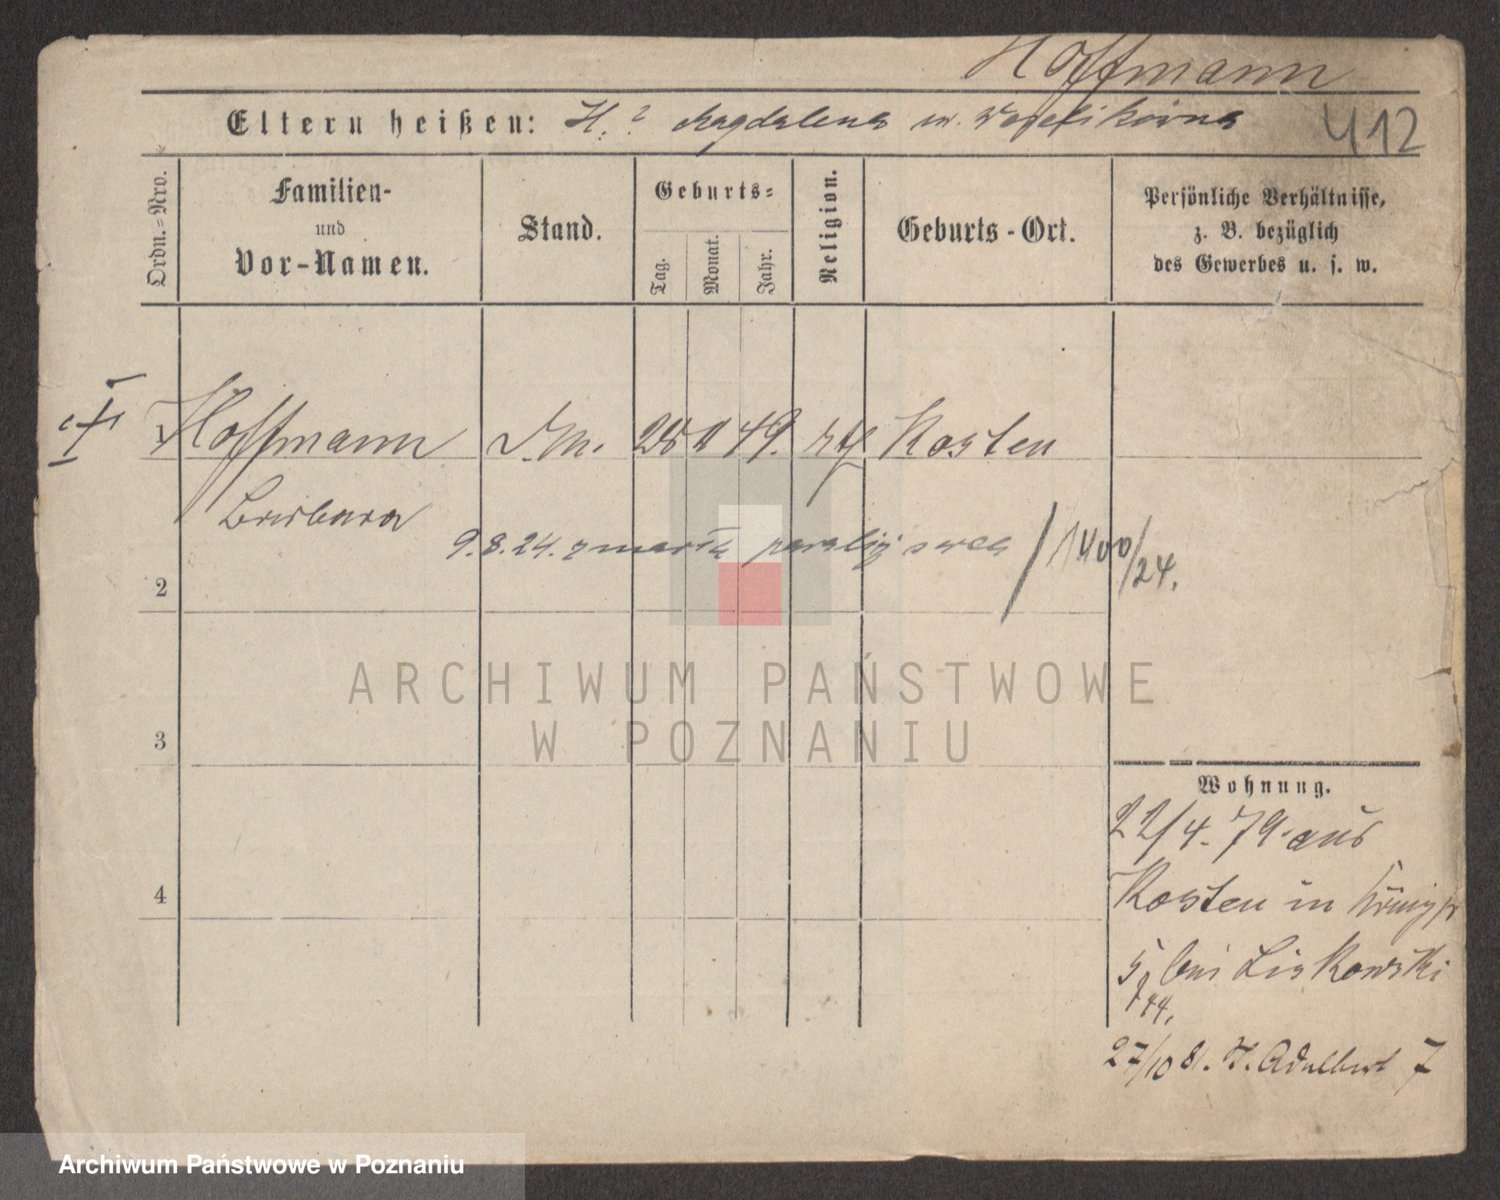 Hoffmann
Eltern heißen: H. ? Magdalena
412
Ordn.-Nro.
Familien-
und
Vor-Namen.
Stand.
Geburts-
Tag.
Monat.
Jahr.
Religion.
Geburts-Ort.
Persönliche Verhältnisse,
z. B. bezüglich
des Gewerbes u. s. w.
1
Hoffmann
49.
Kosten
Barbara
9.8.24. zmarła paraliż serca /1400/24.
2
3
4
ARCHIWUM PAŃSTWOWE
W POZNANIU
Wohnung.
22/4. 79. aus
Kosten in Königstr
5 bei Liskowski
27/10 81. St. Adalbert 7
Archiwum Państwowe w Poznaniu